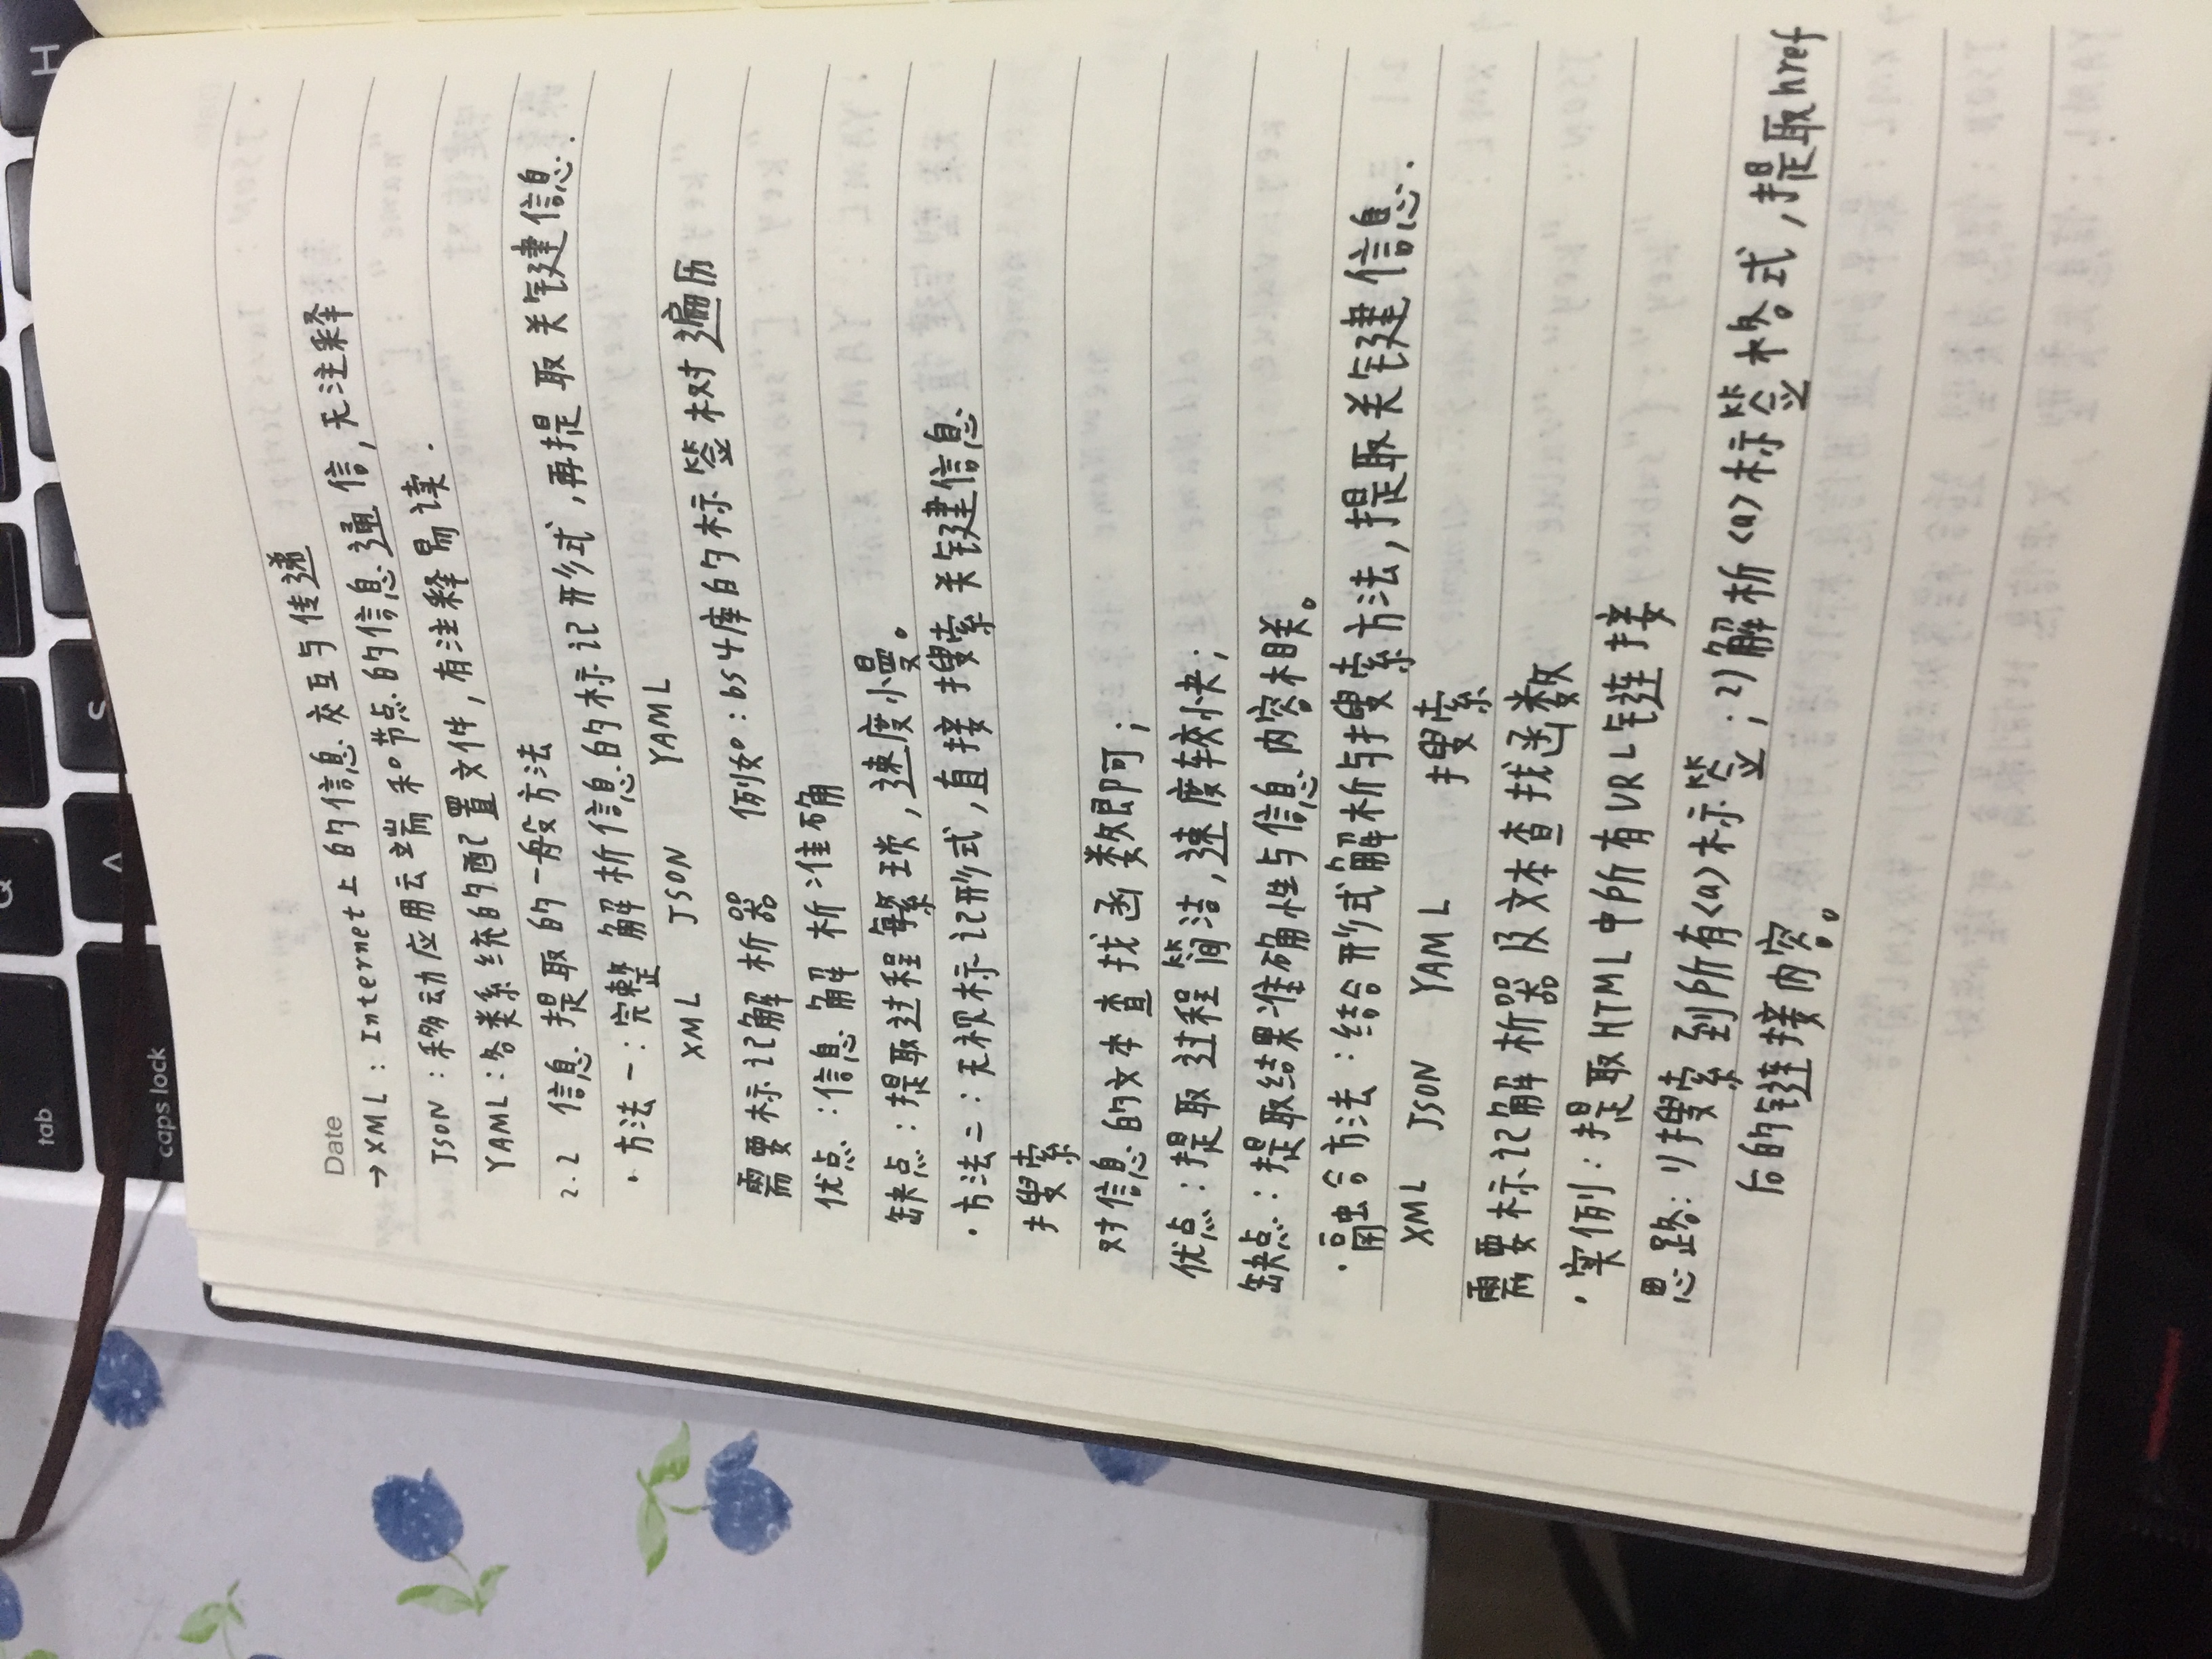 Date
→ XML：Internet上的信息交互与传递
JSON：移动应用云端和节点的信息通信，无注释
YAML：各类系统的配置文件，有注释易读．
2.2 信息提取的一般方法
·方法一：完整解析信息的标记形式，再提取关键信息．
XML JSON YAML
需要标记解析器 例如：bs4库的标签树对遍历
优点：信息解析准确
缺点：提取过程繁琐，速度慢。
·方法二：无视标记形式，直接搜索关键信息
搜索
对信息的文本查找函数即可；
优点：提取过程简洁，速度较快；
缺点：提取结果准确性与信息内容相关。
·融合方法：结合形式解析与搜索方法，提取关键信息．
XML JSON YAML 搜索
需要标记解析器及文本查找函数
·实例：提取HTML中所有URL链接
思路：1）搜索到所有<a>标签；2）解析<a>标签格式，提取href
后的链接内容。
H
Q
A
S
tab
caps lock